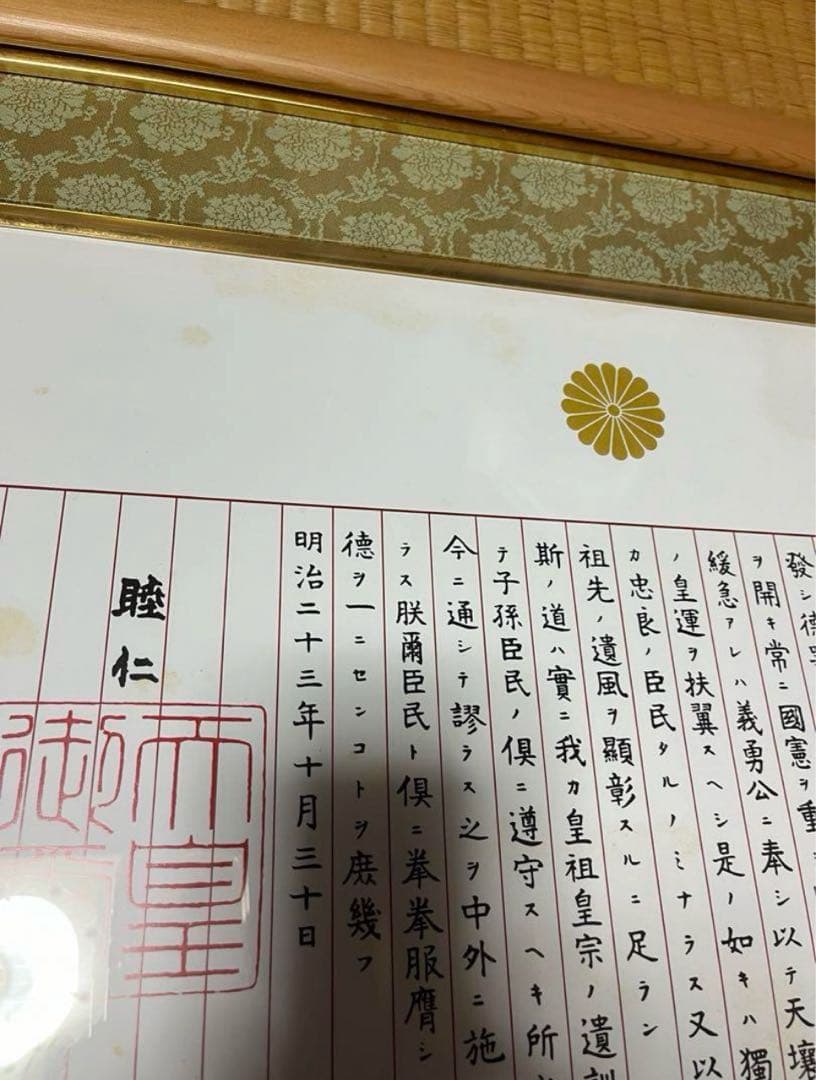 發シ德
ヲ開キ常ニ國憲ヲ重
緩急アレハ義勇公ニ奉シ以テ天壤
ノ皇運ヲ扶翼スヘシ是ノ如キハ獨
カ忠良ノ臣民タルノミナラス又以
祖先ノ遺風ヲ顯彰スルニ足ラン
斯ノ道ハ實ニ我カ皇祖皇宗ノ遺訓
テ子孫臣民ノ俱ニ遵守スヘキ所
今ニ通シテ謬ラス之ヲ中外ニ施
ラス朕爾臣民ト俱ニ拳拳服膺シ
德ヲ一ニセンコトヲ庶幾フ
明治二十三年十月三十日
睦仁
天皇
御